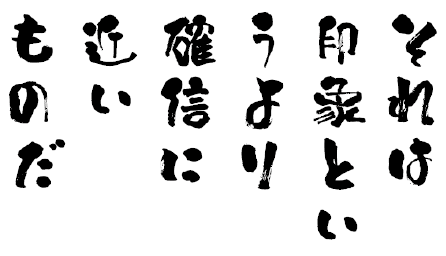 それは
印象とい
うより
確信に
近い
ものだ